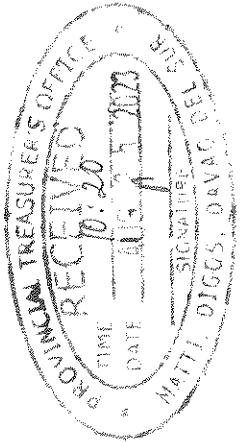 PROVINCIAL TREASURER'S OFFICE
RECEIVED
TIME 10:20
DATE 2023
SIGNATURE
MATTI, DIGOS, DAVAO DEL SUR